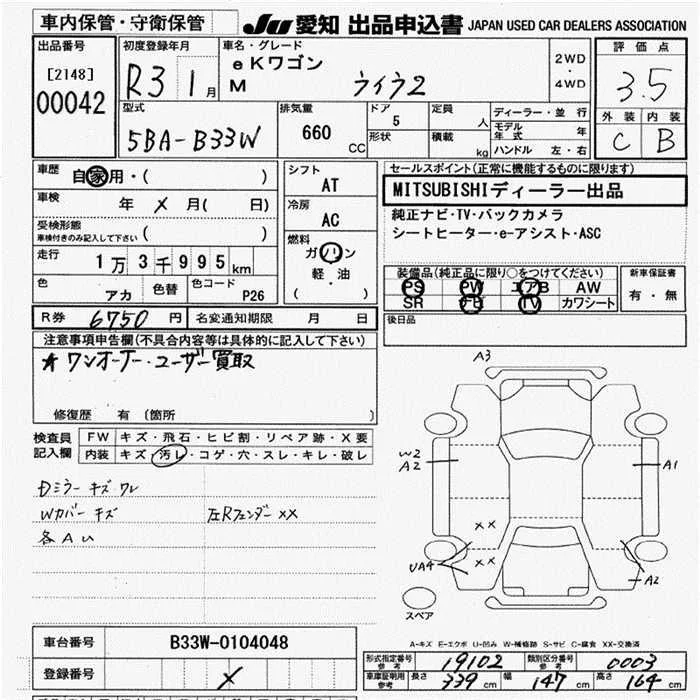 車内保管・守衛保管
JU 愛知 出品申込書 JAPAN USED CAR DEALERS ASSOCIATION
出品番号
[2148]
00042
初度登録年月
R3 1月
車名・グレード
eKワゴン
M ライウ2
2WD・4WD
評価点
3.5
外装 内装
C B
型式
5BA-B33W
排気量
660 CC
ドア
5
形状
定員
人
積載
kg
ディーラー・並行
モデル年式 年
ハンドル 左・右
車歴 自家用・( )
車検 年 メ 月( 日)
受検形態
車検付きのみ記入して下さい ( )
走行 1万3千995km
色 アカ 色替 色コード P26
シフト
AT
冷房
AC
燃料
ガソリン
軽・油
( )
セールスポイント(正常に機能するものに限ります)
MITSUBISHIディーラー出品
純正ナビ・TV・バックカメラ
シートヒーター・e-アシスト・ASC
装備品(純正品に限り○をつけてください)
PS PW エアB AW
SR ナビ TV カワシート
新車保証書
有・無
後日品
R券 6750円 名変通知期限 月 日
注意事項申告欄(不具合内容等は具体的に記入して下さい)
★ワンオーナー・ユーザー買取
修復歴 有 (箇所 )
検査員記入欄
FW キズ・飛石・ヒビ割・リペア跡・X要
内装 キズ・汚レ・コゲ・穴・スレ・キレ・破レ
Dミラー キズ ワレ
Wカバー キズ 左Rフェンダー XX
各AU
A3
W2
A2
A1
XX
XX
UA4
A2
スペア
A-キズ E-エクボ U-凹み W-補修跡 S-サビ C-腐食 XX-交換済
車台番号 B33W-0104048
登録番号 メ
型式指定番号 参考 19102 類別区分番号 参考 0003
車庫証明用 参考 長さ 339cm 幅 147cm 高さ 164cm